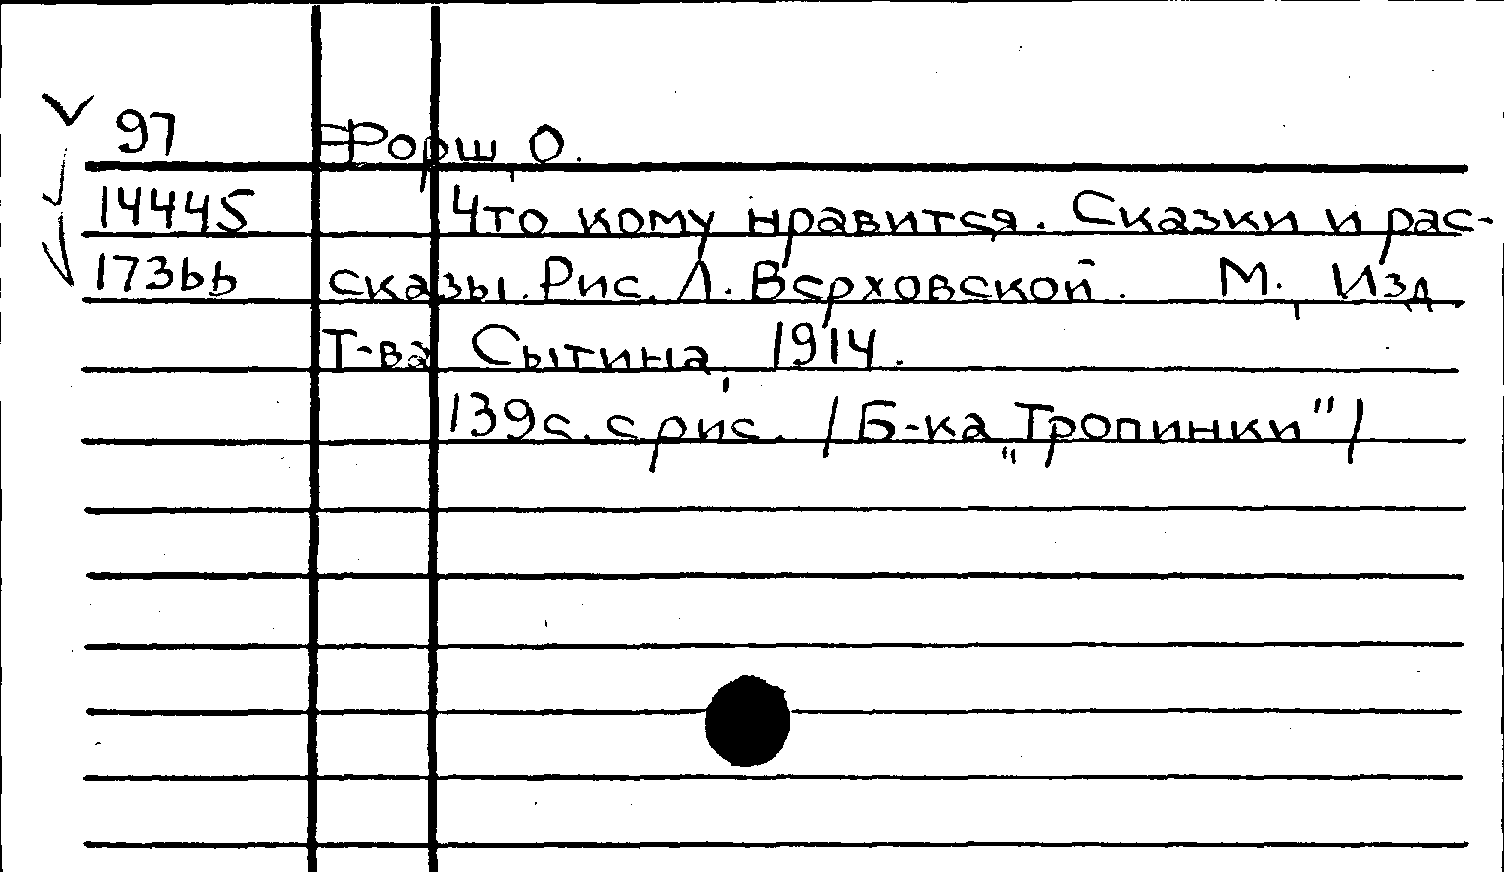 97 Форш, О.
14445 Что кому нравится. Сказки и рас-
173bb сказы. Рис. Л. Верховской. М., Изд
Т-ва Сытина, 1914.
139с. с рис. /Б-ка „Тропинки"/